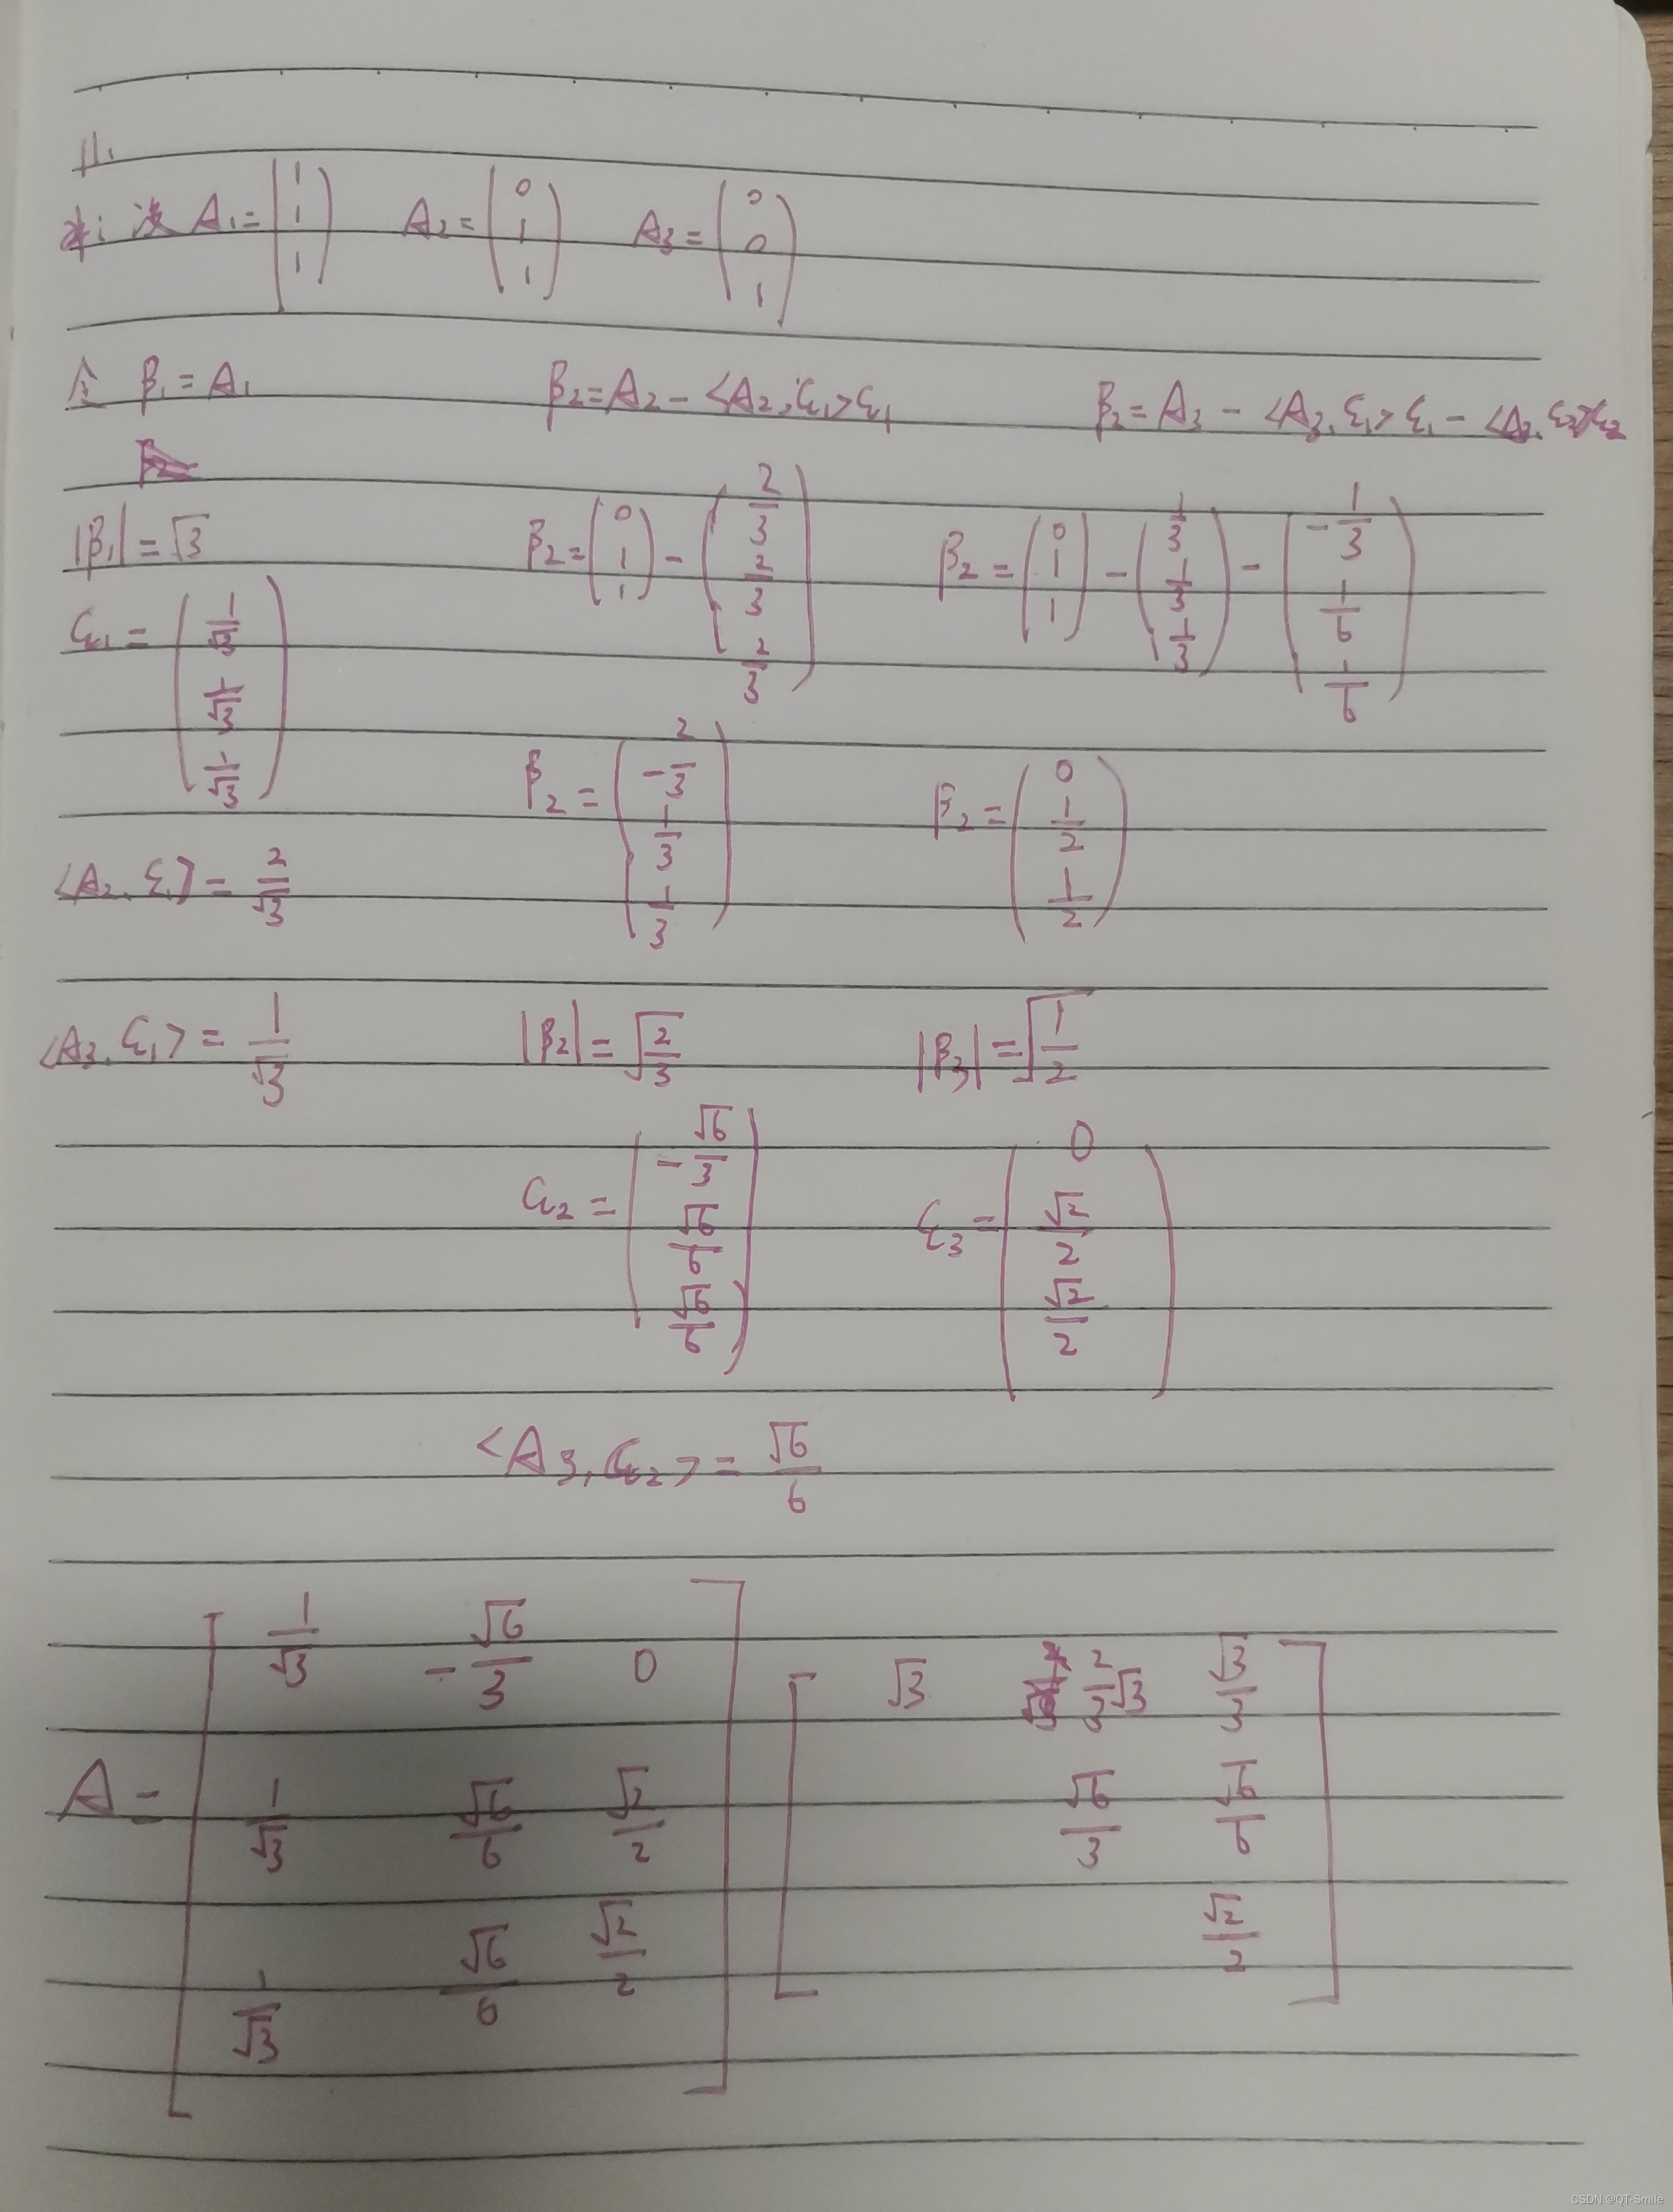 11.
解: 设 A₁ = (1 1 1) A₂ = (0 1 1) A₃ = (0 0 1)
令 β₁ = A₁ β₂ = A₂ - <A₂, ε₁>ε₁ β₂ = A₃ - <A₃, ε₁>ε₁ - <A₃, ε₂>ε₂
|β₁| = √3 β₂ = (0 1 1) - (2/3 2/3 2/3) β₂ = (0 1 1) - (1/3 1/3 1/3) - (-1/3 1/6 1/6)
ε₁ = (1/√3 1/√3 1/√3)
β₂ = (-2/3 1/3 1/3) β₂ = (0 1/2 1/2)
<A₂, ε₁> = 2/√3
<A₃, ε₁> = 1/√3 |β₂| = √(2/3) |β₃| = √(1/2)
ε₂ = (-√6/3 √6/6 √6/6) ε₃ = (0 √2/2 √2/2)
<A₃, ε₂> = √6/6
1/√3 -√6/3 0 √3 2/3√3 √3/3
A = 1/√3 √6/6 √2/2 √6/3 √6/6
1/√3 √6/6 √2/2 √2/2
CSDN @QT-Smile